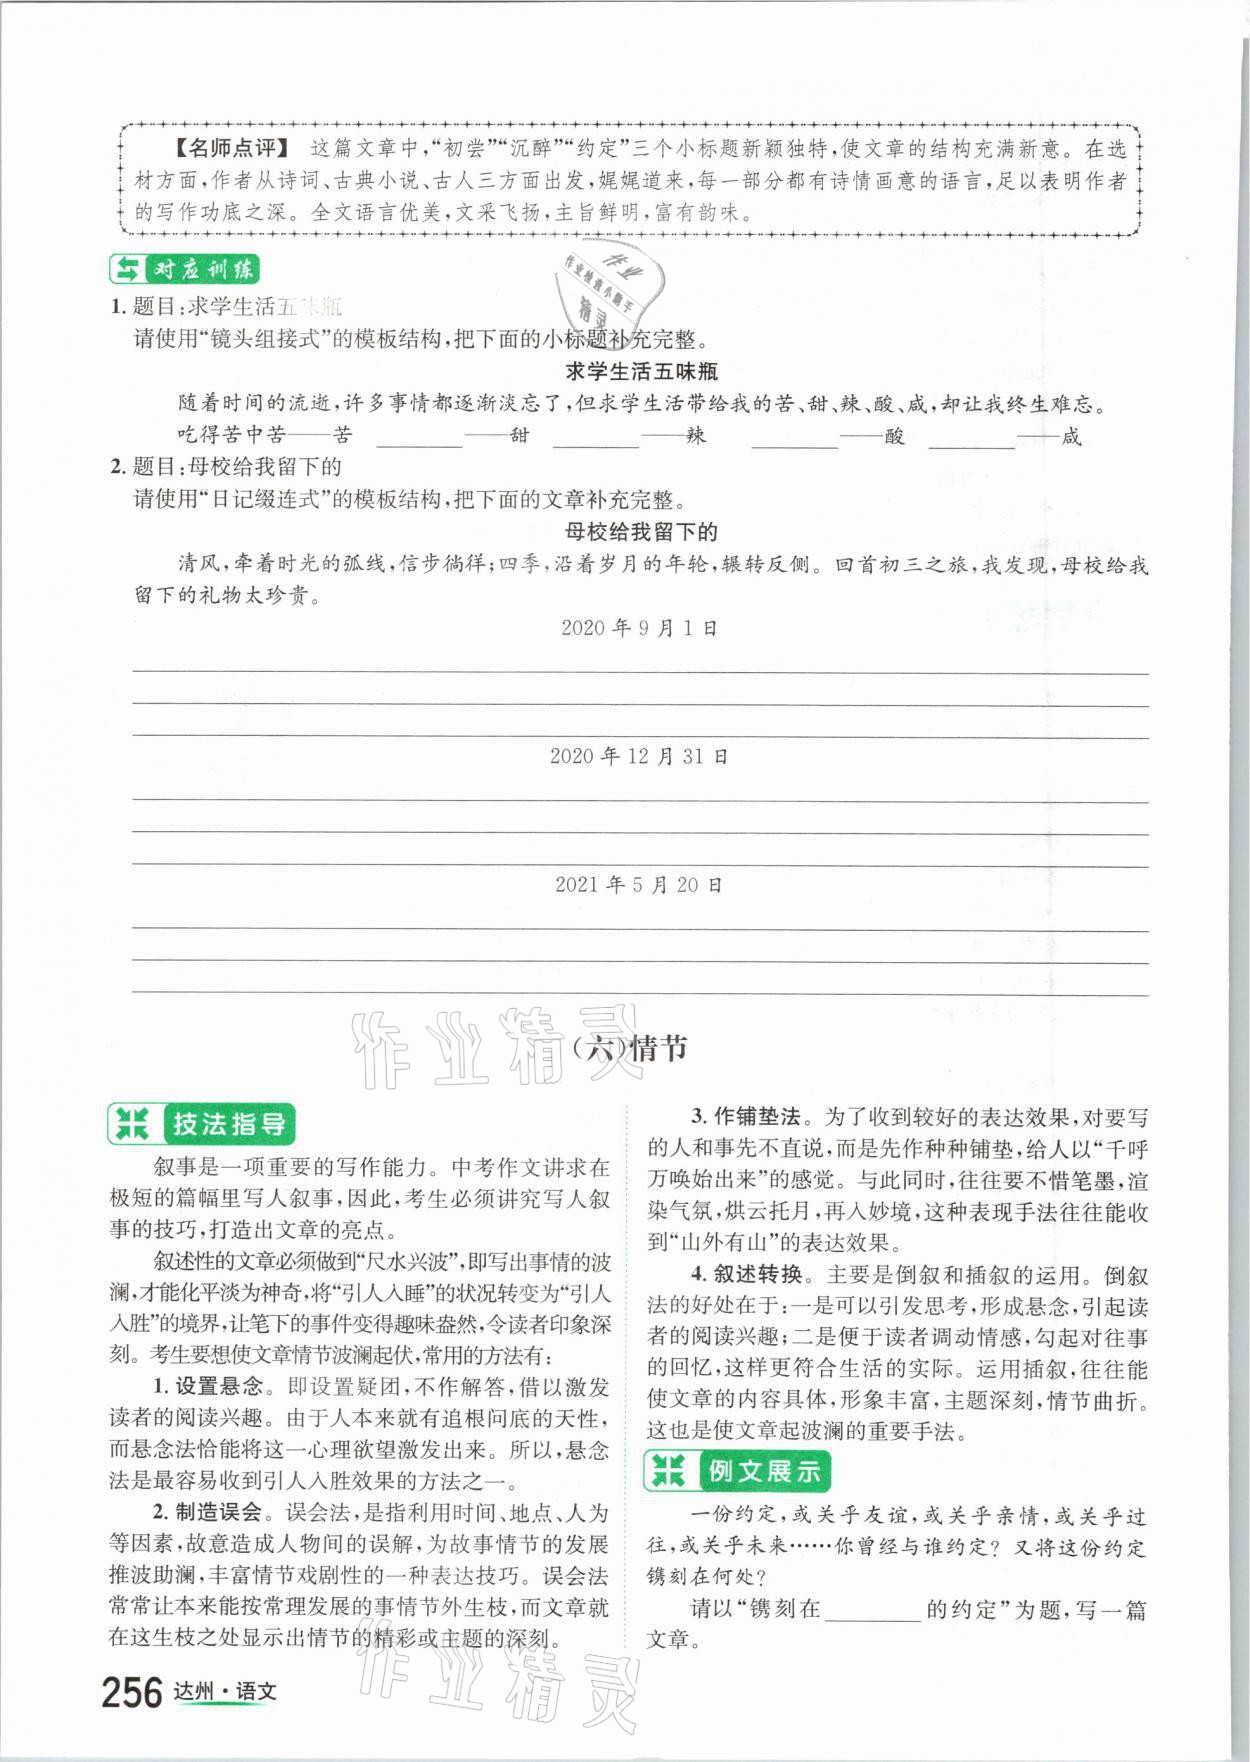 【名师点评】 这篇文章中,“初尝”“沉醉”“约定”三个小标题新颖独特,使文章的结构充满新意。在选
材方面,作者从诗词、古典小说、古人三方面出发,娓娓道来,每一部分都有诗情画意的语言,足以表明作者
的写作功底之深。全文语言优美,文采飞扬,主旨鲜明,富有韵味。
对应训练
作业
作业检查小助手
精灵
1. 题目:求学生活五味瓶
请使用“镜头组接式”的模板结构,把下面的小标题补充完整。
求学生活五味瓶
随着时间的流逝,许多事情都逐渐淡忘了,但求学生活带给我的苦、甜、辣、酸、咸,却让我终生难忘。
吃得苦中苦——苦 ______——甜 ______——辣 ______——酸 ______——咸
2. 题目:母校给我留下的
请使用“日记缀连式”的模板结构,把下面的文章补充完整。
母校给我留下的
清风,牵着时光的弧线,信步徜徉;四季,沿着岁月的年轮,辗转反侧。回首初三之旅,我发现,母校给我
留下的礼物太珍贵。
2020 年 9 月 1 日
2020 年 12 月 31 日
2021 年 5 月 20 日
作业精灵
(六)情节
技法指导
叙事是一项重要的写作能力。中考作文讲求在
极短的篇幅里写人叙事,因此,考生必须讲究写人叙
事的技巧,打造出文章的亮点。
叙述性的文章必须做到“尺水兴波”,即写出事情的波
澜,才能化平淡为神奇,将“引人入睡”的状况转变为“引人
入胜”的境界,让笔下的事件变得趣味盎然,令读者印象深
刻。考生要想使文章情节波澜起伏,常用的方法有:
1. 设置悬念。即设置疑团,不作解答,借以激发
读者的阅读兴趣。由于人本来就有追根问底的天性,
而悬念法恰能将这一心理欲望激发出来。所以,悬念
法是最容易收到引人入胜效果的方法之一。
2. 制造误会。误会法,是指利用时间、地点、人为
等因素,故意造成人物间的误解,为故事情节的发展
推波助澜,丰富情节戏剧性的一种表达技巧。误会法
常常让本来能按常理发展的事情节外生枝,而文章就
在这生枝之处显示出情节的精彩或主题的深刻。
3. 作铺垫法。为了收到较好的表达效果,对要写
的人和事先不直说,而是先作种种铺垫,给人以“千呼
万唤始出来”的感觉。与此同时,往往要不惜笔墨,渲
染气氛,烘云托月,再入妙境,这种表现手法往往能收
到“山外有山”的表达效果。
4. 叙述转换。主要是倒叙和插叙的运用。倒叙
法的好处在于:一是可以引发思考,形成悬念,引起读
者的阅读兴趣;二是便于读者调动情感,勾起对往事
的回忆,这样更符合生活的实际。运用插叙,往往能
使文章的内容具体,形象丰富,主题深刻,情节曲折。
这也是使文章起波澜的重要手法。
例文展示
一份约定,或关乎友谊,或关乎亲情,或关乎过
往,或关乎未来……你曾经与谁约定?又将这份约定
镌刻在何处?
请以“镌刻在______的约定”为题,写一篇
文章。
作业精灵
256 达州·语文